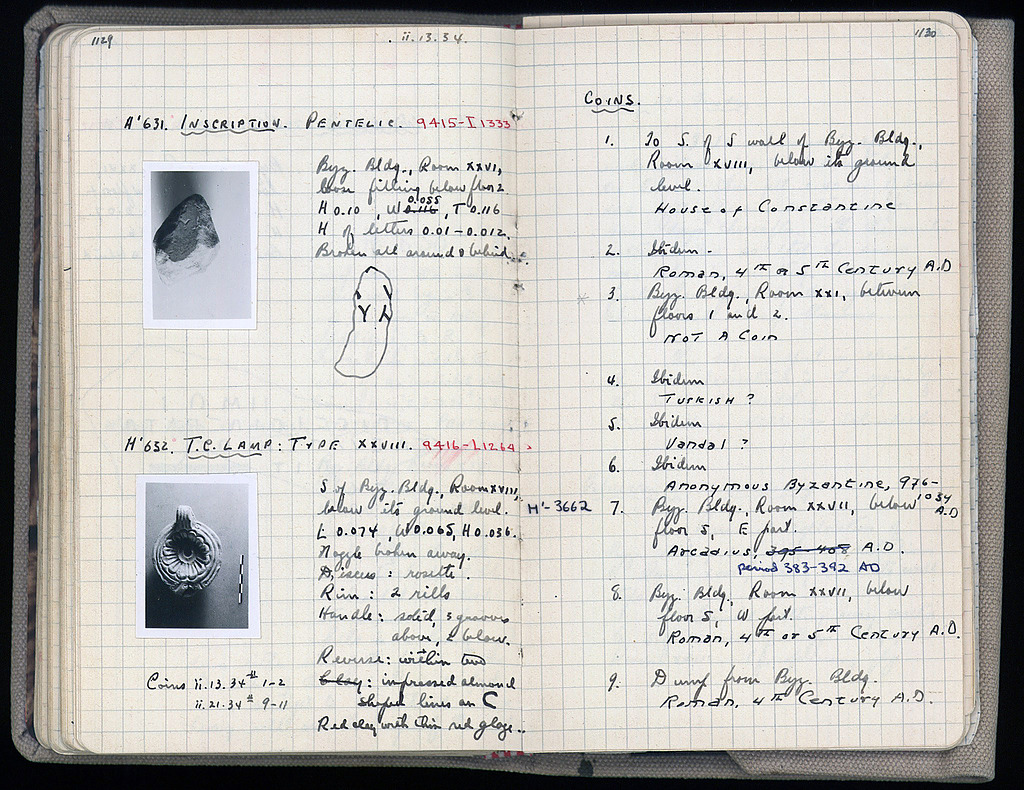 1129
ii.13.34.
H'631. INSCRIPTION. PENTELIC. 9415-I 1333
Byz. Bldg., Room XXVI,
loose filling below floor 2.
H 0.10, W 0.116 0.055, T 0.116
H of letters 0.01-0.012.
Broken all around & behind.
Y
H'632. T.C. LAMP: TYPE XXVIII. 9416-L1264
S of Byz. Bldg., Room XVIII,
below its ground level.
L 0.074, W 0.065, H 0.036.
Nozzle broken away.
Discus: rosette.
Rim: 2 rills
Handle: solid, 3 grooves
above, 2 below.
Reverse: within two
Clay: impressed almond
shaped lines an C
Red clay with thin red glaze..
Coins ii.13.34 # 1-2
ii.21.34 # 9-11
1130
COINS.
1. To S. of S wall of Byz. Bldg.,
Room XVIII, below its ground
level.
House of Constantine
2. Ibidem -
Roman, 4th or 5th Century A.D
3. Byz. Bldg., Room XXI, between
floors 1 and 2.
NOT A COIN
4. Ibidem
TURKISH ?
5. Ibidem
Vandal ?
6. Ibidem
Anonymous Byzantine, 976-
1034 A.D
H'-3662 7. Byz. Bldg., Room XXVII, below
floor 5, E part.
Arcadius, 395-408 A.D.
period 383-392 AD
8. Byz. Bldg, Room XXVII, below
floor 5, W part.
Roman, 4th or 5th Century A.D.
9. Dump from Byz. Bldg.
Roman, 4th Century A.D.